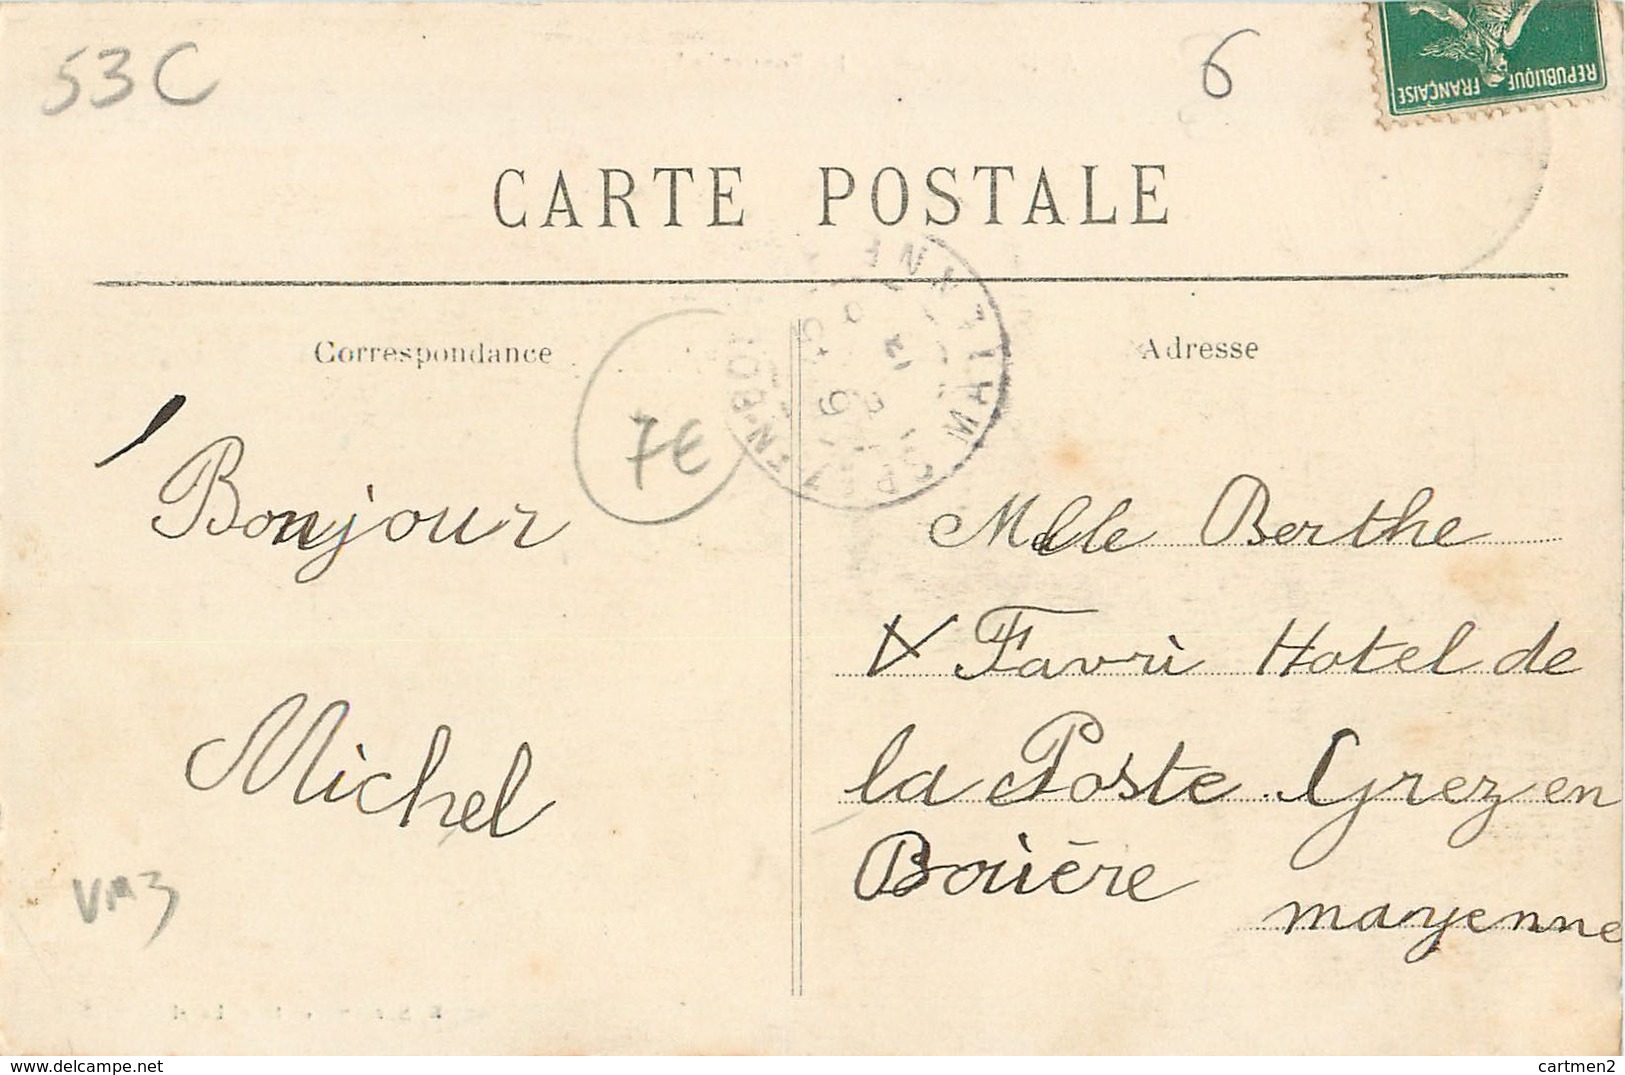 53C
6
REPUBLIQUE FRANÇAISE
CARTE POSTALE
Correspondance
Adresse
7€
Bonjour
Michel
VM3
Melle Berthe
Favri Hotel de
la Poste Grez en
Bouère
mayenne
cartmen2